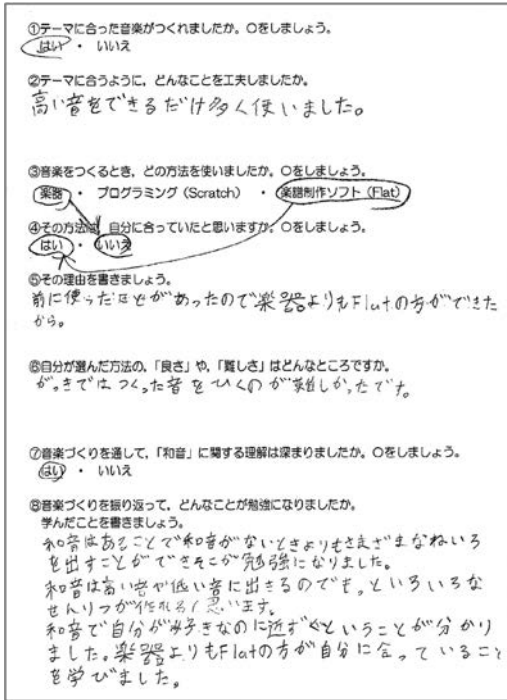 ①テーマに合った音楽がつくれましたか。○をしましょう。
はい ・ いいえ
②テーマに合うように、どんなことを工夫しましたか。
高い音をできるだけ多く使いました。
③音楽をつくるとき、どの方法を使いましたか。○をしましょう。
楽器 ・ プログラミング(Scratch) ・ 楽譜制作ソフト(Flat)
④その方法は、自分に合っていたと思いますか。○をしましょう。
はい ・ いいえ
⑤その理由を書きましょう。
前に使ったことがあったので楽器よりもFlatの方ができた
から。
⑥自分が選んだ方法の、「良さ」や、「難しさ」はどんなところですか。
がっきではつくった音をひくのが難しかったです。
⑦音楽づくりを通して、「和音」に関する理解は深まりましたか。○をしましょう。
はい ・ いいえ
⑧音楽づくりを振り返って、どんなことが勉強になりましたか。
学んだことを書きましょう。
和音はあることで和音がないときよりもさまざまなねいろ
を出すことができそこが勉強になりました。
和音は高い音や低い音に出きるのでもっといろいろな
せんりつが作れると思います。
和音で自分が好きなのに近ずくということが分かり
ました。楽器よりもFlatの方が自分に合っていること
を学びました。